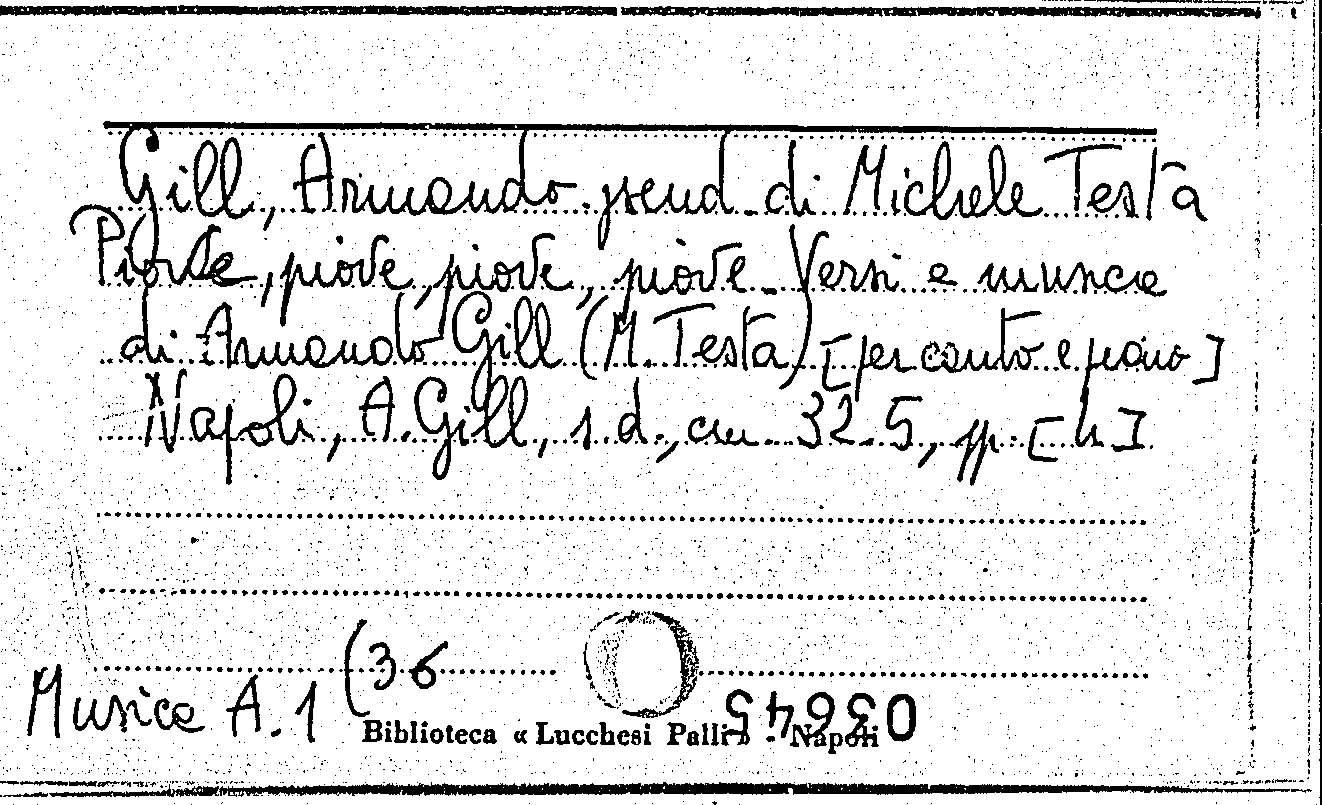 Gill, Armando pseud. di Michele Testa
Piove, piove, piove, piove. Versi e musica
di Armando Gill (M. Testa) [per canto e piano]
Napoli, A. Gill, s.d., cm. 32.5, pp. [4]
Musica A. 1 (36
Biblioteca « Lucchesi Palli » - Napoli
03645